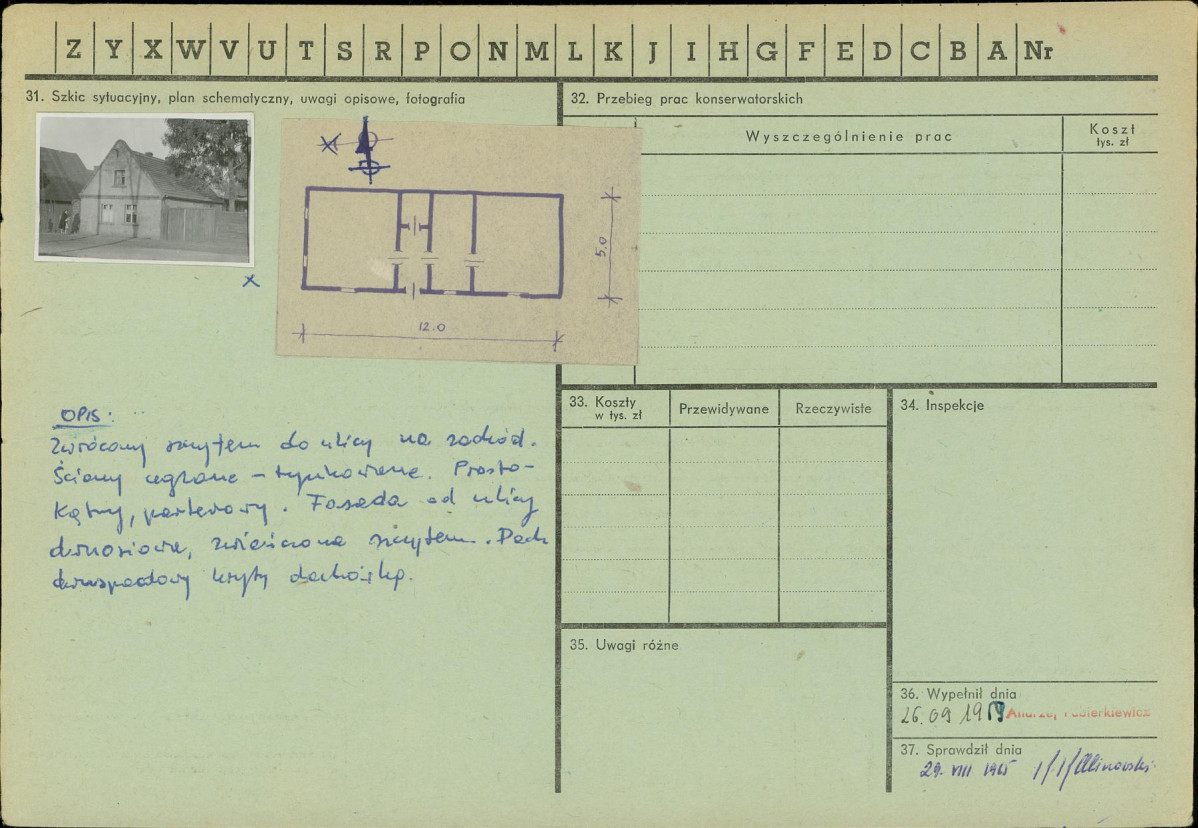 Z Y X W V U T S R P O N M L K J I H G F E D C B A Nr
31. Szkic sytuacyjny, plan schematyczny, uwagi opisowe, fotografia
12.0
5.0
OPIS:
Zwrócony szczytem do ulicy na zachód.
Ściany ceglane – tynkowane. Prosto-
kątny, parterowy. Fasada od ulicy
dwuosiowa, zwieńczona szczytem. Dach
dwuspadowy kryty dachówką.
32. Przebieg prac konserwatorskich
Wyszczególnienie prac
Koszt
tys. zł
33. Koszty
w tys. zł
Przewidywane
Rzeczywiste
34. Inspekcje
35. Uwagi różne
36. Wypełnił dnia
26.09 1959 Andrzej
37. Sprawdził dnia
29. VIII 1965